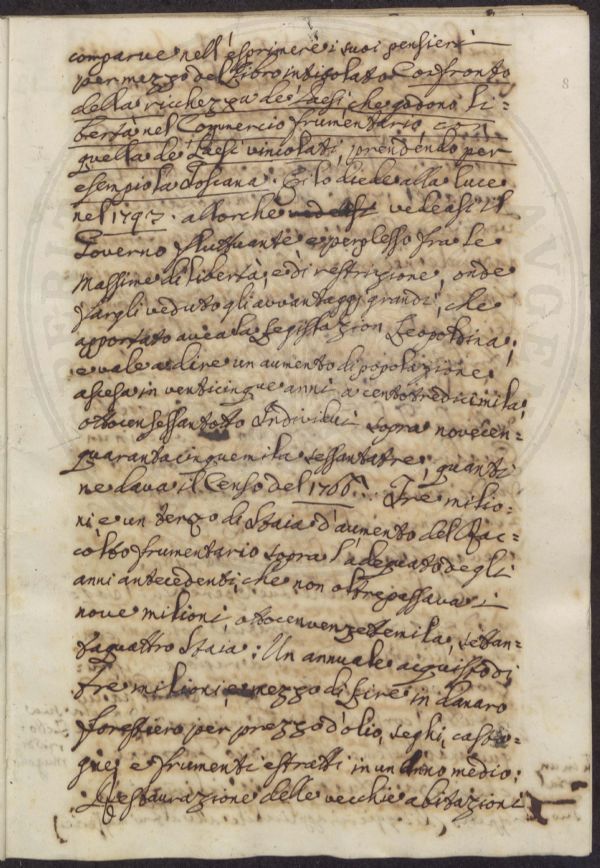 8
comparve nell'esprimere i suoi pensieri
per mezzo del Libro intitolato Confronto
della ricchezza de' Paesi che godono li=
bertà nel Commercio frumentario con
quella de' Paesi vincolati, prendendo per
esempio la Toscana. Ei lo diede alla luce
nel 1793. allorche vedeasi il
Governo fluttuante e perplesso fra le
Massime di libertà, e di restrizione, onde
fargli veduto gli avvantaggi grandi, che
apportato avea la Legislazion Leopoldina;
e vale a dire un aumento di popolazione
ascesa in venticinque anni a centotredicimila,
ottocensessantotto Individui sopra novecen=
quarantacinquemila sessantatre, quanti
ne dava il Censo del 1766.: Tre milio=
ni e un terzo di Staia d'aumento del Rac=
colto frumentario sopra l'adequato degli
anni antecedenti, che non oltrepassava i
nove milioni, ottocenvenzettemila, settan=
taquattro Staia: Un annuale acquisto di
tre milioni, e mezzo di Lire in danaro
forestiero per prezzo d'olio, leghi, casta=
gne, e frumenti estratti in un Anno medio:
Restaurazione delle vecchie abitazioni